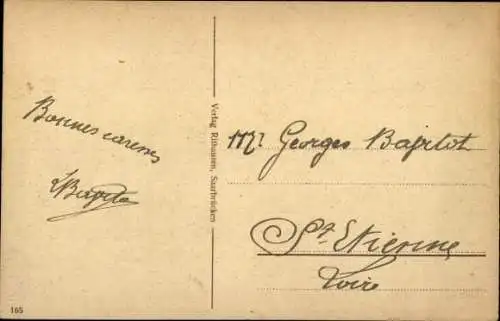 Bonnes caresses
Verlag Rithausen, Saarbrücken
Mr Georges Bapitot
St Etienne
Loire
165